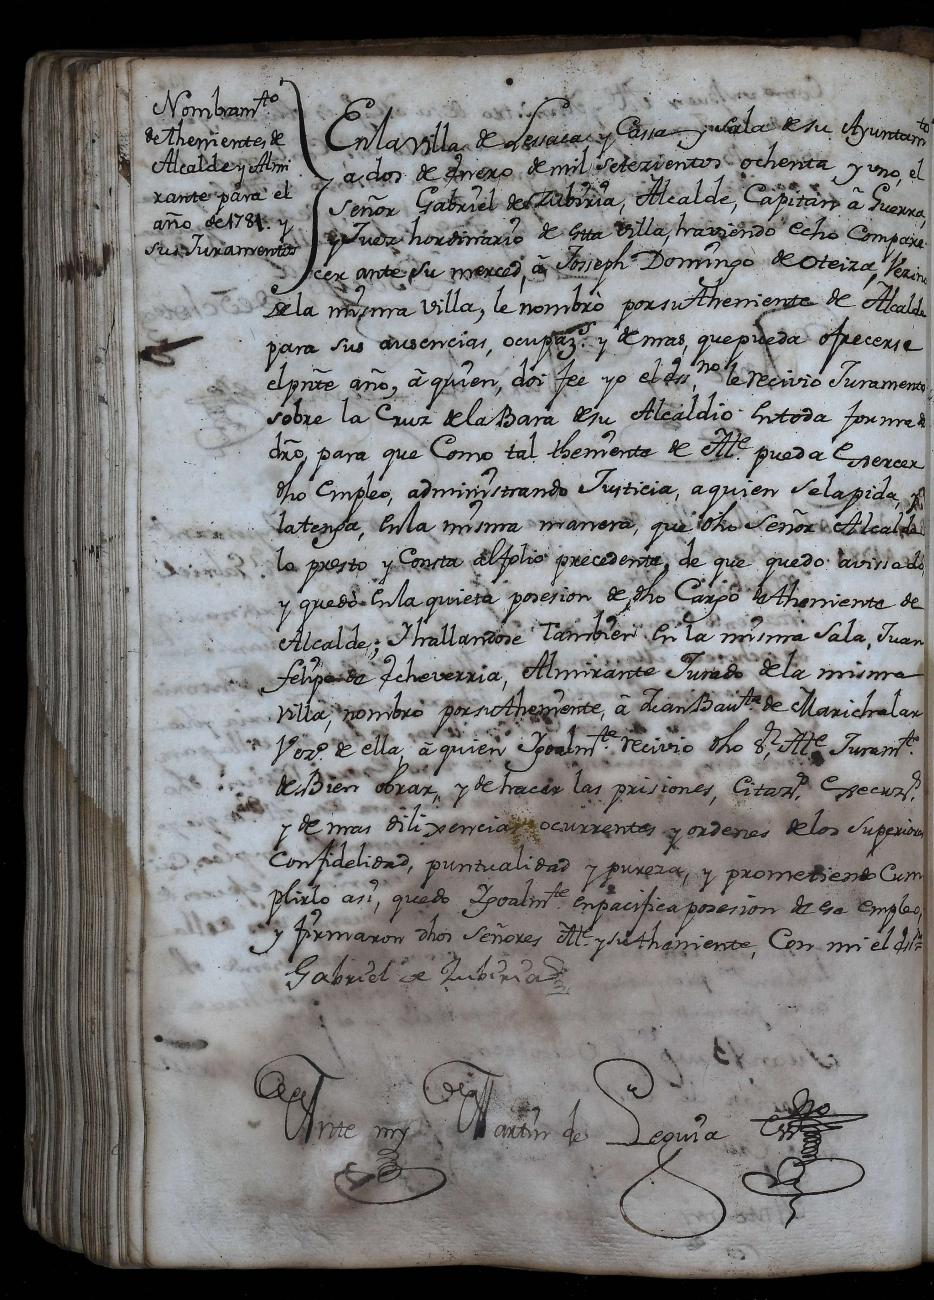 Nombram.to
de thenientes de
Alcalde y Almi
rante para el
año de 1781. y
sus Juramentos
En la villa de Lessaca y Cassa y sala de su Ayuntam.to
a dos de Henero de mil setezientos ochenta y uno, el
señor Gabriel de Zubiria, Alcalde, Capitan â Guerra,
y Juez hordinario de esta villa, haviendo echo Compare
cer ante su merced, â Josseph Domingo de Oteiza, Vezino
de la misma villa, le nombrò por su theniente de Alcalde
para sus ausencias, ocupaz.s y demas, que pueda ofrecerse
el pñte año, â quien, doi fee yo el ess.no le recivio Juramento
sobre la Cruz de la Bara de su Alcaldio en toda forma de
dr̃o, para que Como tal theniente de Alc.e pueda Exercer
dho empleo, administrando Justicia, a quien se la pida, y
la tenga, en la misma manera, que dho Señor Alcalde
lo presto y Consta al folio precedente, de que quedo avissado
y quedò en la quieta posesion de dho Cargo de theniente de
Alcalde; Y hallandose tambien en la misma sala, Juan
felipe de Echeverria, Almirante Jurado de la misma
villa, nombrò por su theniente, â Juan Bau.ta de Marichalar
Vez.o de ella, â quien Igoalm.te recivio dho S.r Alc.e Juram.to
de Bien obrar, y de hacer las prisiones, Citaz.s, Execuz.s
y demas dilixencias ocurrentes y ordenes de los superiores
Con fidelidad, puntualidad y pureza, y prometiendo Cum
plirlo asi, quedo Igoalm.te en pacifica posesion de ese empleo,
y firmaron dhos Señores Alc.e y su theniente, Con mi el ess.no
Gabriel de Zubiria
Ante my Martin de Leguia Ess.no